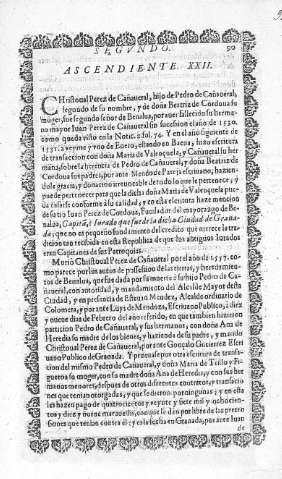 SEGVNDO. 90
ASCENDIENTE. XXII.
CHristoual Perez de Cañaueral, hijo de Pedro de Cañaueral,
segundo de su nombre, y de doña Beatriz de Cordoua su
muger, fue segundo señor de Benalua, por auer fallecido su herma-
no mayor Iuan Perez de Cañaueral sin sucession el año de 1530.
como queda visto en la Nota 2. fol. 74. Y en el año siguiente de
1531. a veynte y vno de Enero, estando en Baeça, hizo escritura
de transaccion con doña Maria de Valençuela, y Cañaueral su her-
mana, sobre la herencia de Pedro de Cañaueral, y doña Beatriz de
Cordoua sus padres, por ante Mendo de Pareja escriuano, hazien-
dole gracia, y donacion irreuocable de todo lo que le pertenece, y
puede pertenecer para que la dicha doña Maria de Valençuela pue-
da
de su tio Iuan Perez de Cordoua, Fundador del mayorazgo de Be-
nalua, Capitan, i Iurado que fue de la dicha Ciudad de Grana-
da, que no es pequeño fundamento del credito que merece la tra-
dicion tan recibida en esta Republica de que los antiguos Iurados
eran Capitanes de sus Parroquias.
Murio Christoual Perez de Cañaueral por el año de 1557. co-
mo parece por los autos de possession de las tierras, y heredamien-
tos de Benalua, que fue dada por su muerte a su hijo Pedro de Ca-
ñaueral, con autoridad, y mandamiento del Alcalde Mayor desta
Ciudad, y en presencia de Esteuan Mendez, Alcalde ordinario de
Colomera, y por ante Luys de Mendoza, Escriuano Publico, a diez
y nueue dias de Febrero del año referido, en que tambien hizieron
particion Pedro de Cañaueral, y sus hermanos, con doña Ana de
Heredia su madre de los bienes, y hazienda de su padre, y marido
Christoual Perez de Cañaueral, por ante Gonçalo Gutierrez Escri-
uano Publico de Granada. Y prueuase por otra escritura de transac-
cion del mismo Pedro de Cañaueral, y doña Maria de Trillo y Fi-
gueroa su muger, con su madre doña Ana de Heredia, y con sus her-
manos menores, despues de otros diferentes contratos, y transaccio-
nes que tenian otorgadas, y que se dieron por ningunas; y en esta
les hazen pago de quatrocientos y veynte y siete mil y ochocien-
tos y diez y nueue marauedis, con que le dan por libre de las pretensio-
nes que tenian contra el; y su fecha en Granada, por ante Iuan
de